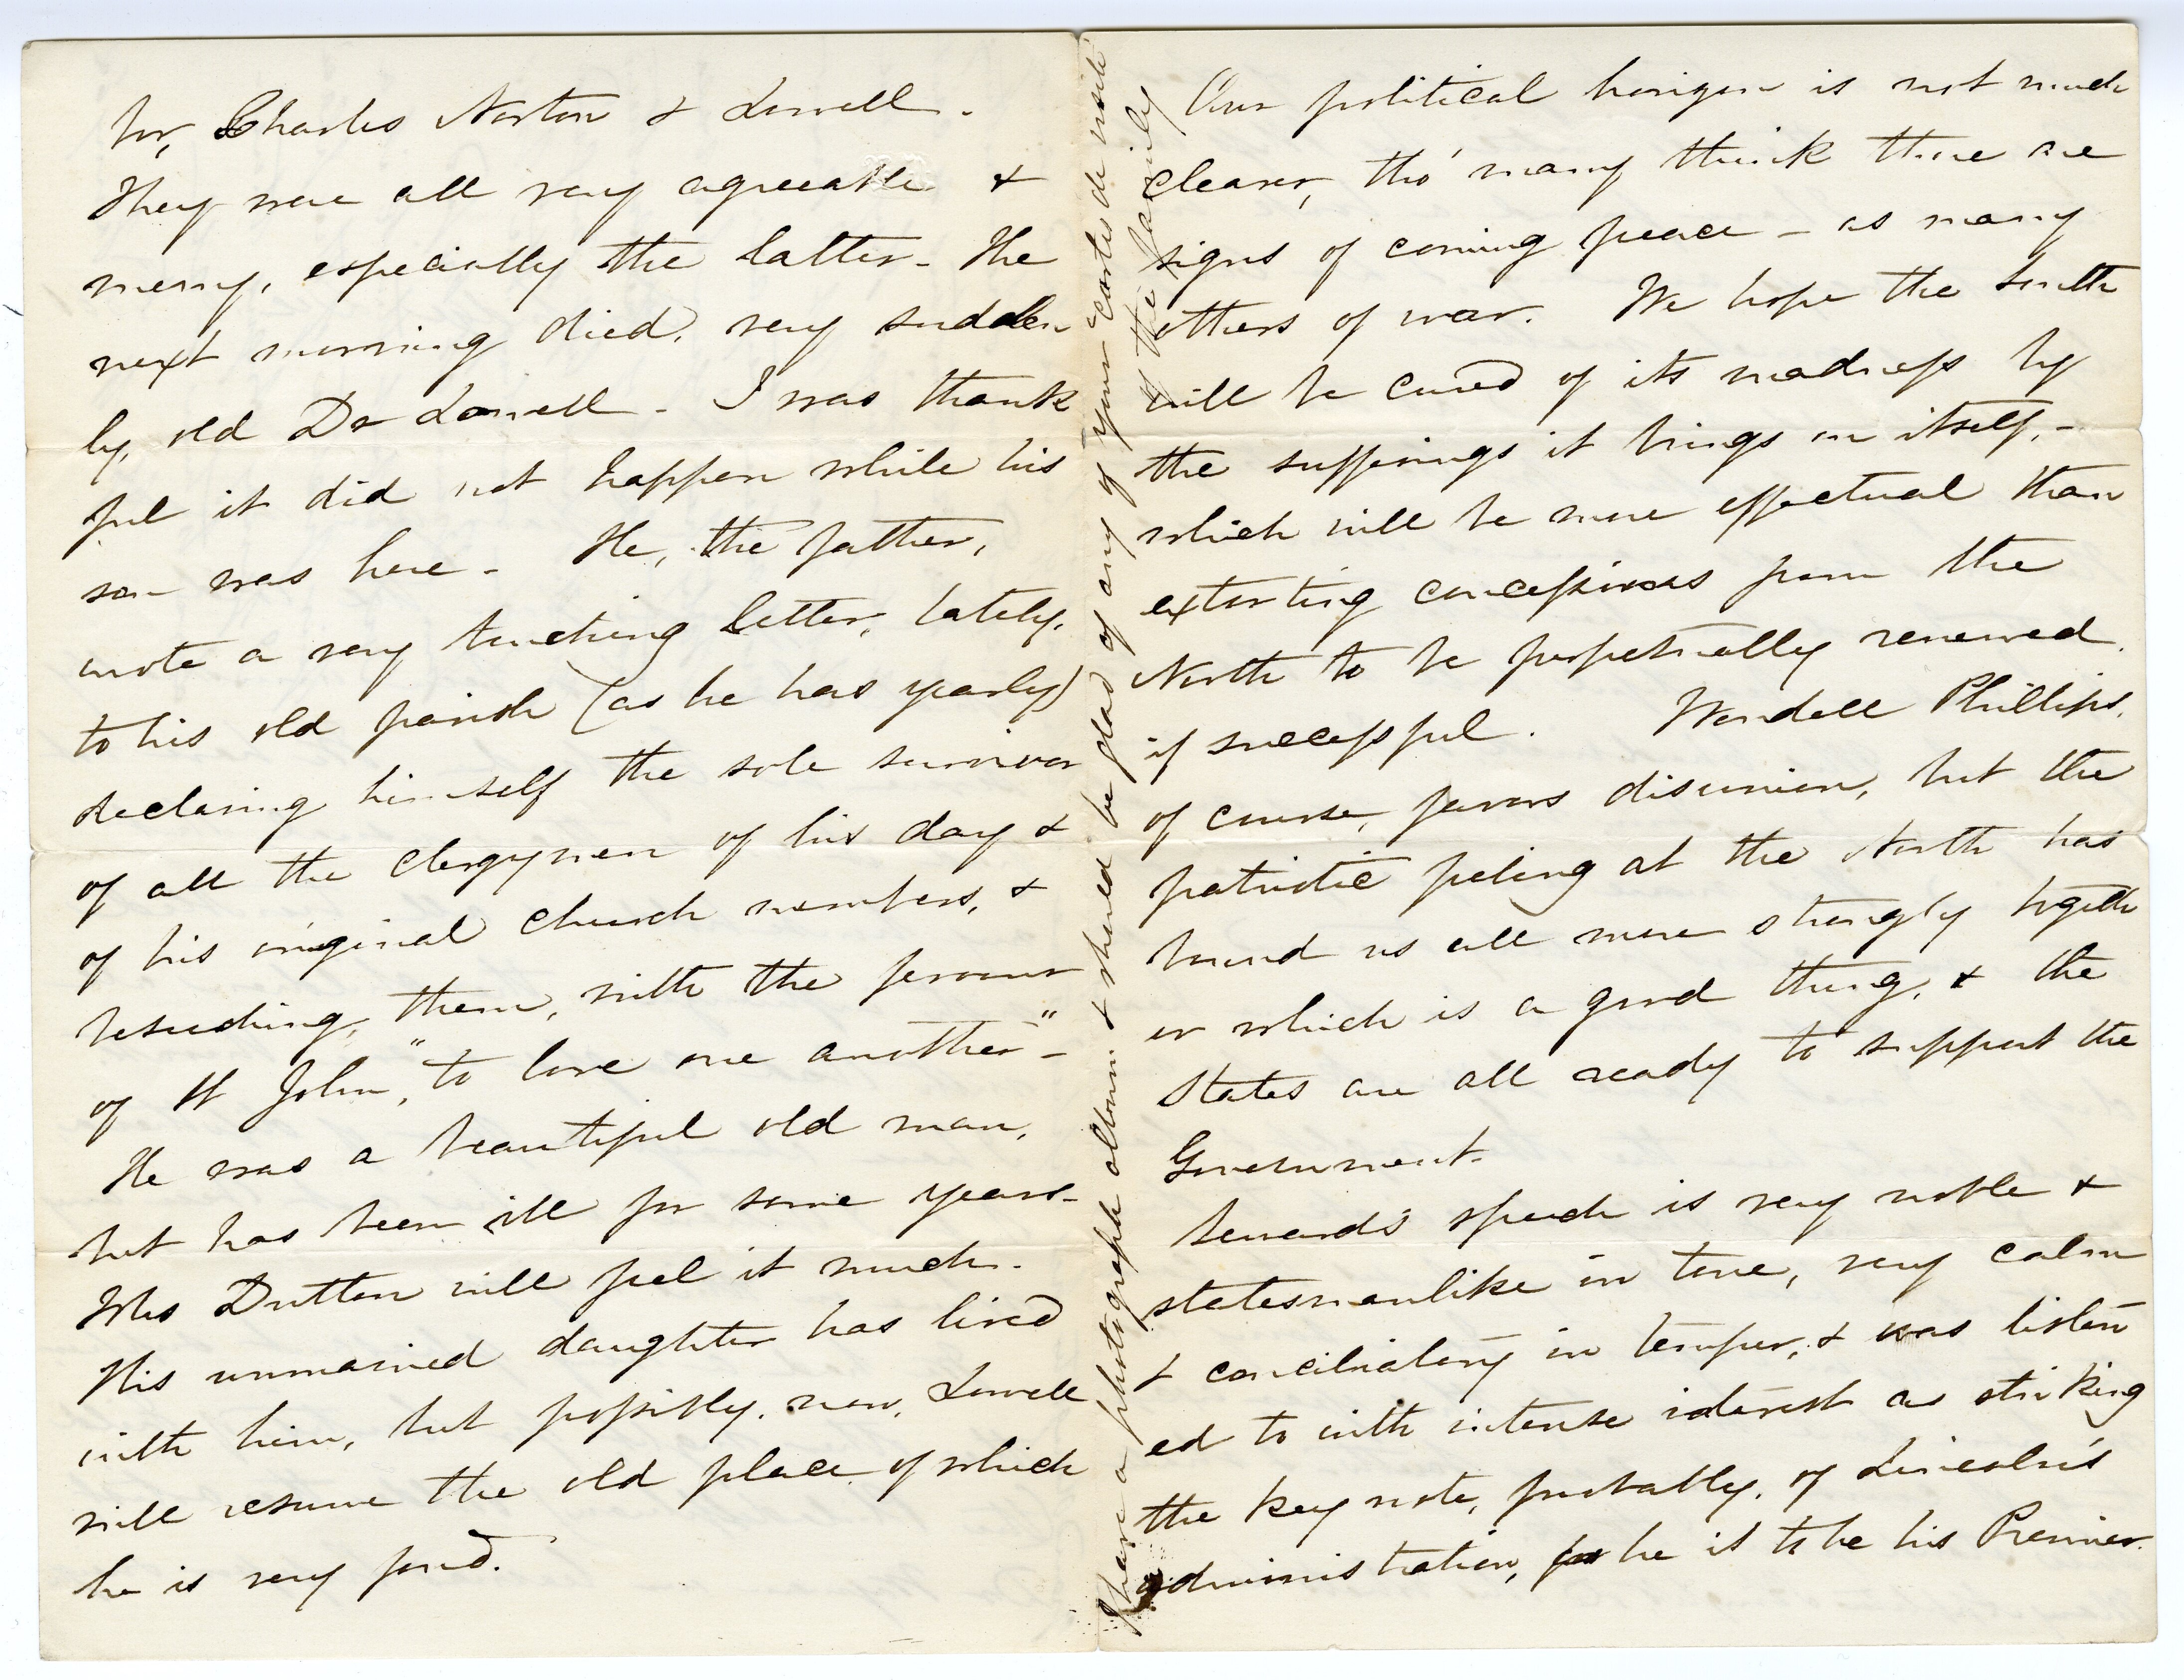 for, Charles Norton & Lowell.
They were all very agreeable &
merry, especially the latter - The
next morning died, very sudden
ly, old Dr Lowell - I was thank
ful it did not happen while his
son was here - He, the father,
wrote a very touching letter, lately,
to his old parish (as he has yearly)
declaring himself the sole survivor
of all the clergymen of his day &
of his original church members, &
beseeching, them, with the fervour
of St John, "to love one another" -
He was a beautiful old man,
but has been ill for some years -
Mrs Dutton will feel it much.
His unmarried daughter has lived
with him, but possibly, now, Lowell
will resume the old place of which
he is very fond.
Our political horizon is not much
clearer, tho' many think there are
signs of coming peace - as many
others of war. We hope the South
will be cured of its madness by
the sufferings it brings on itself, -
which will be more effectual than
extorting concessions from the
North to be perpetually renewed,
if successful. Wendell Phillips,
of course, favors disunion, but the
patriotic feeling at the North has
bound us all more strongly togeth
er which is a good thing, & the
States are all ready to support the
Government.
Seward's speech is very noble &
statesmanlike in tone, very calm
& conciliatory in temper, & was listen
ed to with intense interest as striking
the key note, probably, of Lincoln's
administration, for he is to be his Premier.
I have a photograph album & should be glad of any of your "cartes de visite"
of the family